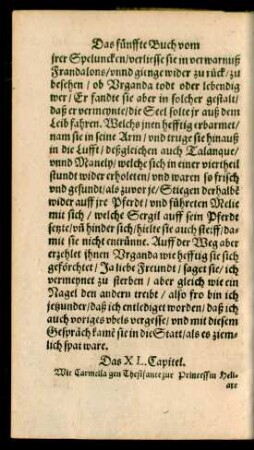 Das fünffte Buch vom
jrer Speluncken/verliesse sie in verwarnuß
Frandalons/vnnd gienge wider zu rück/zu
besehen/ob Vrganda todt oder lebendig
wer/Er fandte sie aber in solcher gestalt/
daß er vermeynte/die Seel solte jr auß dem
Leib fahren. Welchs jnen hefftig erbarmet/
nam sie in seine Arm/vnd truge sie hinauß
in die Lufft/deßgleichen auch Talanque/
vnnd Manely/welche sich in einer viertheil
stundt wider erholeten/vnd waren so frisch
vnd gesundt/als zuvor je/Stiegen derhalbẽ
wider auff jre Pferdt/vnd führeten Melie
mit sich/welche Sergil auff sein Pferdt
setzte/vñ hinder sich/hielte sie auch steiff/da-
mit sie nicht entrünne. Auff der Weg aber
erzehlet jhnen Vrganda wie hefftig sie sich
geförchtet/Ja liebe Freundt/saget sie/ich
vermeynet zu sterben/aber gleich wie ein
Nagel den andern treibt/also fro bin ich
jetzunder/daß ich entlediget worden/daß ich
auch voriges vbels vergesse/vnd mit diesem
Gespräch kamẽ sie in die Statt/als es ziem-
lich spat ware.
Das XL. Capitel.
Wie Carmella gen Thesifante zur Princessin Heli-
axe